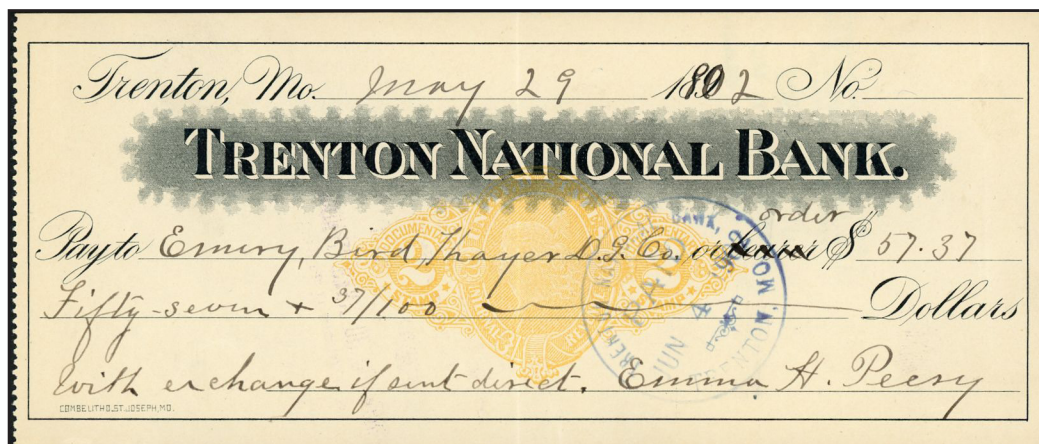 Trenton, Mo. May 29 1902 No.
TRENTON NATIONAL BANK.
order
Pay to Emery, Bird, Thayer D. G. Co. or bearer $ 57.37
Fifty-seven + 37/100 Dollars
With exchange if sent direct. Emma H. Peery
COMBE LITHO. ST. JOSEPH, MO.
2 2
PAID
JUN 4
TRENTON, MO.